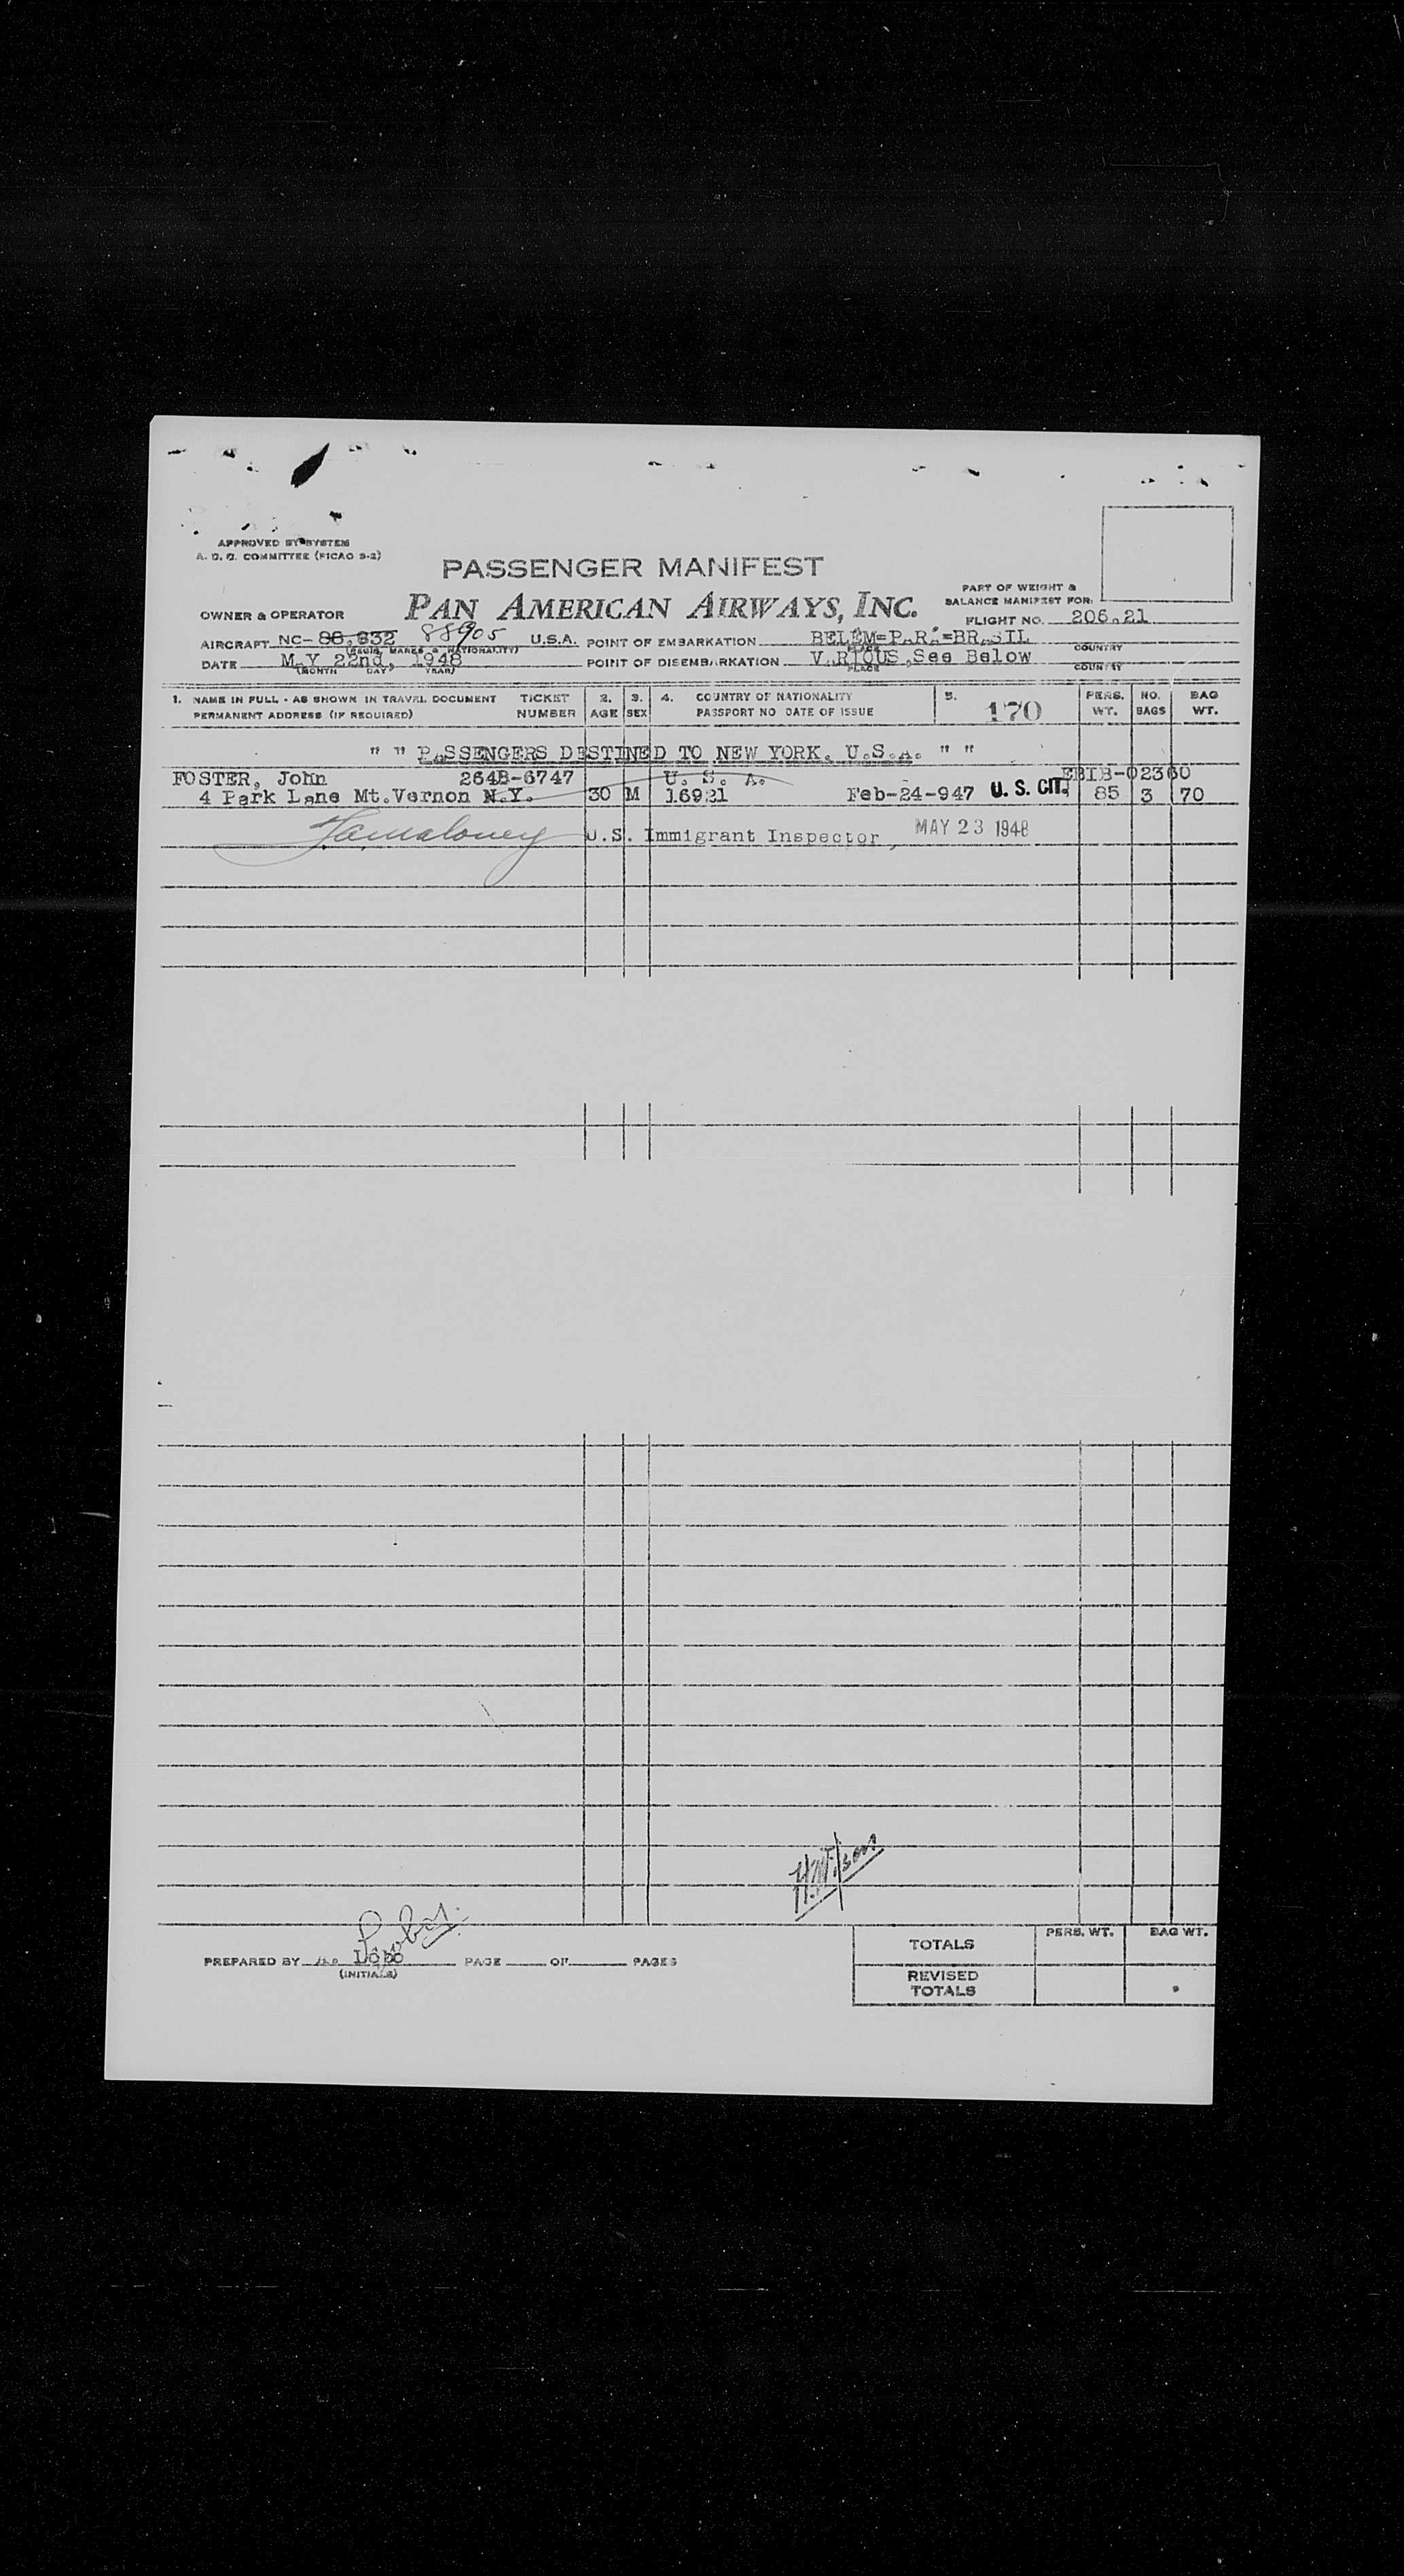 APPROVED BY SYSTEM
A. D. D. COMMITTEE (FICAO S-2)
PASSENGER MANIFEST
OWNER & OPERATOR PAN AMERICAN AIRWAYS, INC.
PART OF WEIGHT &
BALANCE MANIFEST FOR:
FLIGHT NO. 206.21
AIRCRAFT NC-88.832 88905 U.S.A. POINT OF EMBARKATION BELEM=PARA=BRASIL
(REGIS. MARKS & NATIONALITY) PLACE COUNTRY
DATE MAY 22nd, 1948 POINT OF DISEMBARKATION VARIOUS, See Below
(MONTH DAY YEAR) PLACE COUNTRY
1. NAME IN FULL - AS SHOWN IN TRAVEL DOCUMENT TICKET 2. 3. 4. COUNTRY OF NATIONALITY 5. PERS. NO. BAG
PERMANENT ADDRESS (IF REQUIRED) NUMBER AGE SEX PASSPORT NO DATE OF ISSUE 170 WT. BAGS WT.
" " PASSENGERS DESTINED TO NEW YORK. U.S.A. " "
FOSTER, John 264B-6747 U. S. A. EBIB-02360
4 Park Lane Mt.Vernon N.Y. 30 M 16921 Feb-24-947 U. S. CIT. 85 3 70
U.S. Immigrant Inspector MAY 23 1948
H. Wilson
PREPARED BY Lobo PAGE OF PAGES
(INITIALS)
PERS. WT. BAG WT.
TOTALS
REVISED
TOTALS